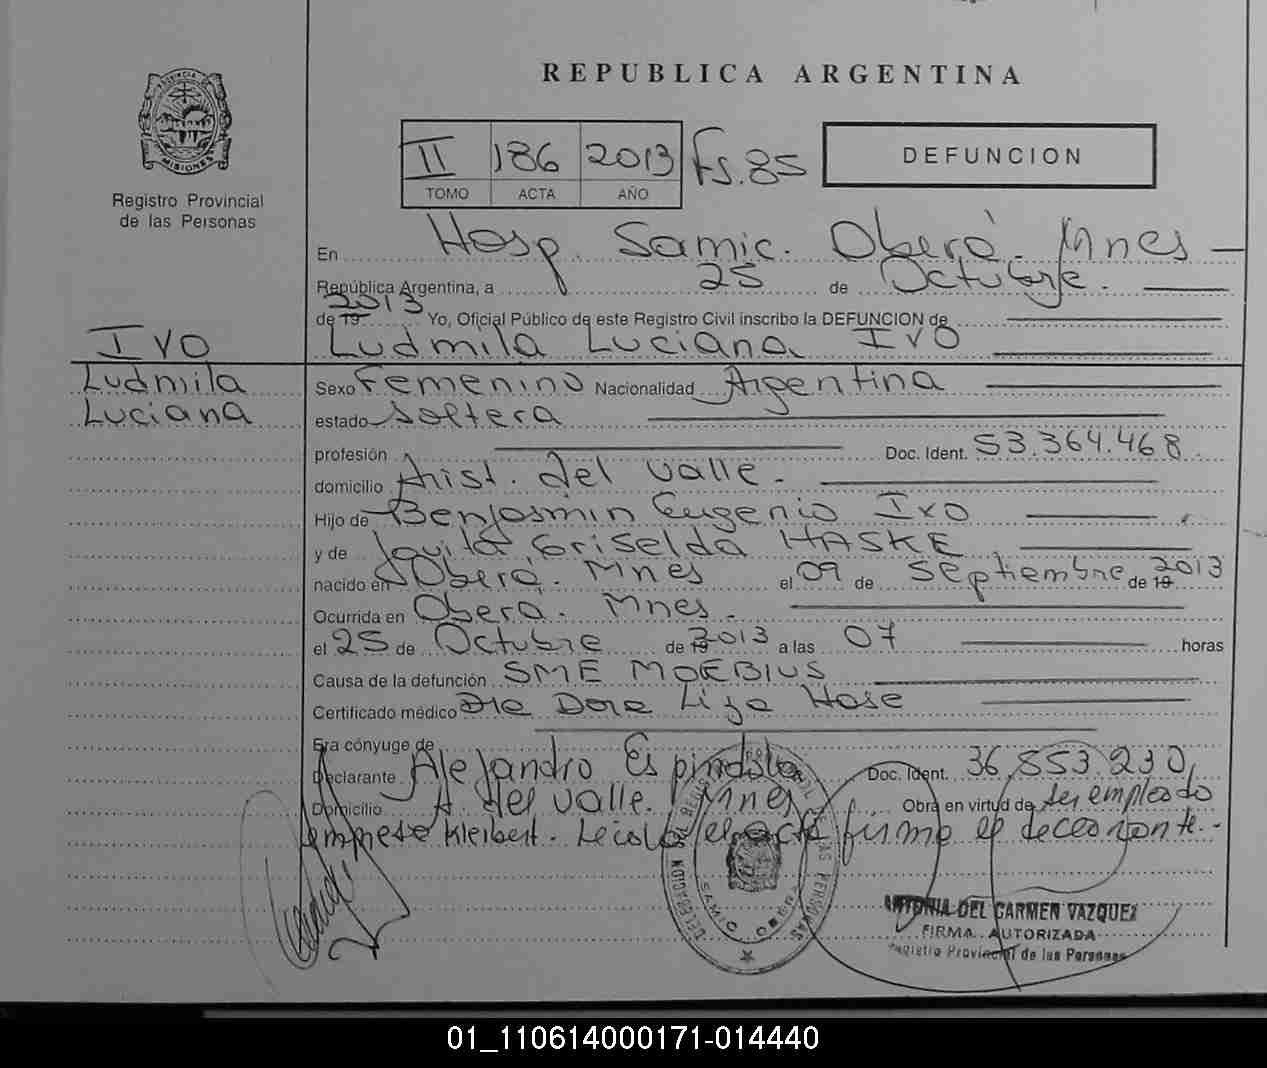 REPUBLICA ARGENTINA
PROVINCIA DE MISIONES
Registro Provincial
de las Personas
II 186 2013 Fs. 85
TOMO ACTA AÑO
DEFUNCION
En Hosp. Samic. Oberá. Mnes
República Argentina, a 25 de Octubre.
de 19 2013 Yo, Oficial Público de este Registro Civil inscribo la DEFUNCION de
Ivo Ludmila Luciana Ivo
Ludmila Sexo Femenino Nacionalidad Argentina
Luciana estado Soltera
profesión Doc. Ident. 53.364.468
domicilio Arist. del Valle.
Hijo de Benjasmin Eugenio Ivo
y de Griselda HASKE
nacido en Oberá. Mnes el 09 de Septiembre de 19 2013
Ocurrida en Oberá. Mnes.
el 25 de Octubre de 19 2013 a las 07 horas
Causa de la defunción SME MOEBIUS
Certificado médico Dra Dora Hase
Era cónyuge de
Declarante Alejandro Espindola Doc. Ident. 36.853.230
Domicilio A. del Valle. Mnes Obra en virtud de ser empleado
empresa Kleibert. firma el
DELEGACION DE REGISTRO PROVINCIAL DE LAS PERSONAS
SAMIC OBERA
ANTONIA DEL CARMEN VAZQUEZ
FIRMA AUTORIZADA
Registro Provincial de las Personas
01_110614000171-014440